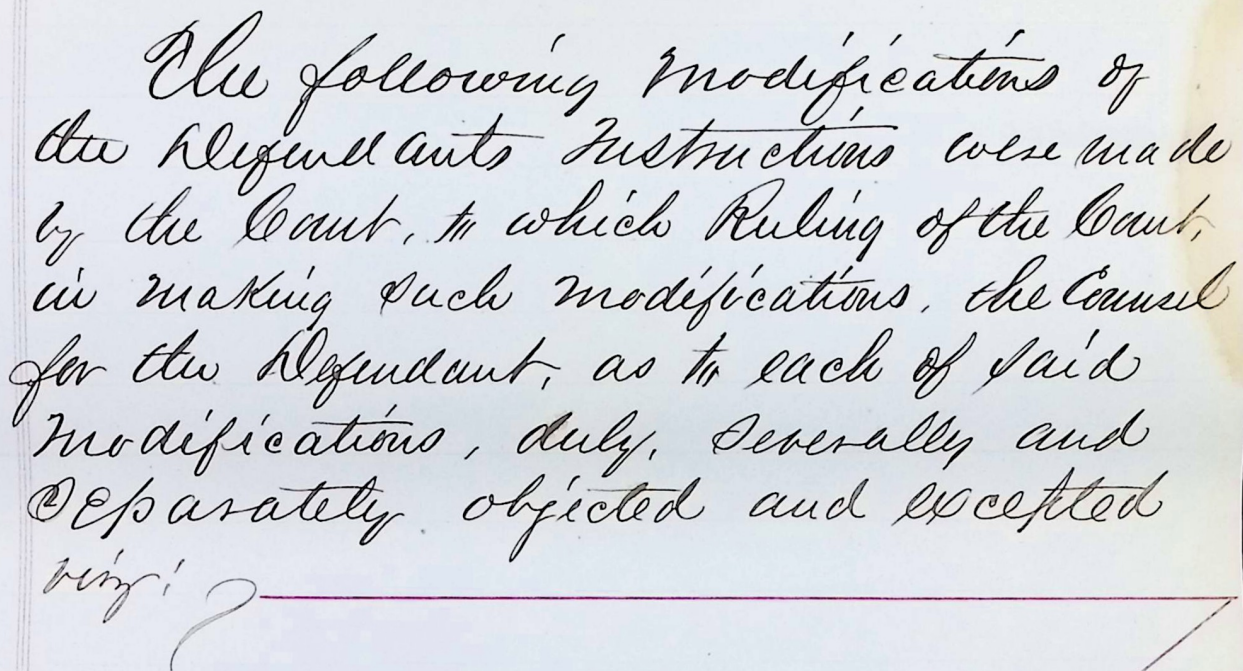 The following modifications of
the Defendants Instructions were made
by the Court, to which Ruling of the Court,
in making such modifications, the Counsel
for the Defendant, as to each of said
modifications, duly, severally and
separately objected and excepted
viz;